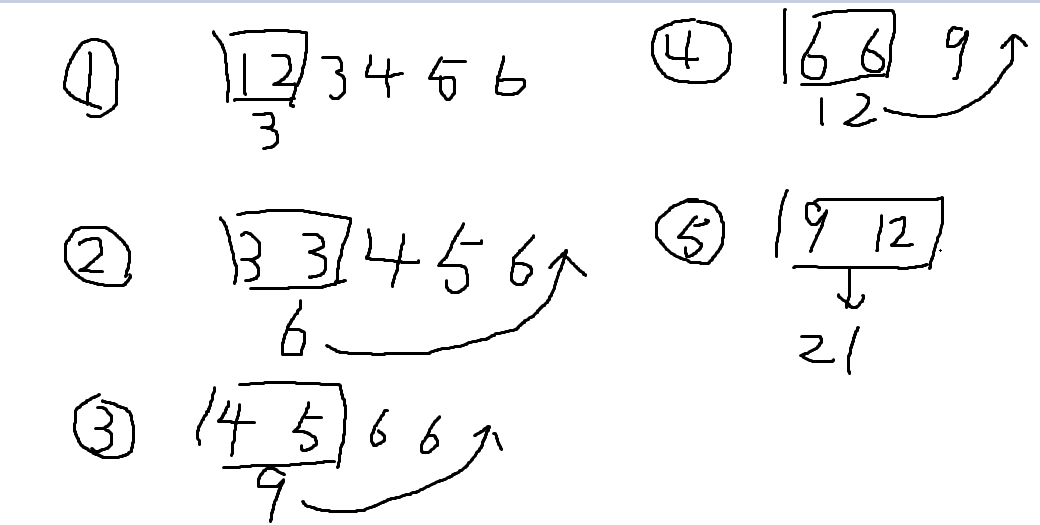 ① 1 2 3 4 5 6
3
② 3 3 4 5 6
6
③ 4 5 6 6
9
④ 6 6 9
12
⑤ 9 12
21